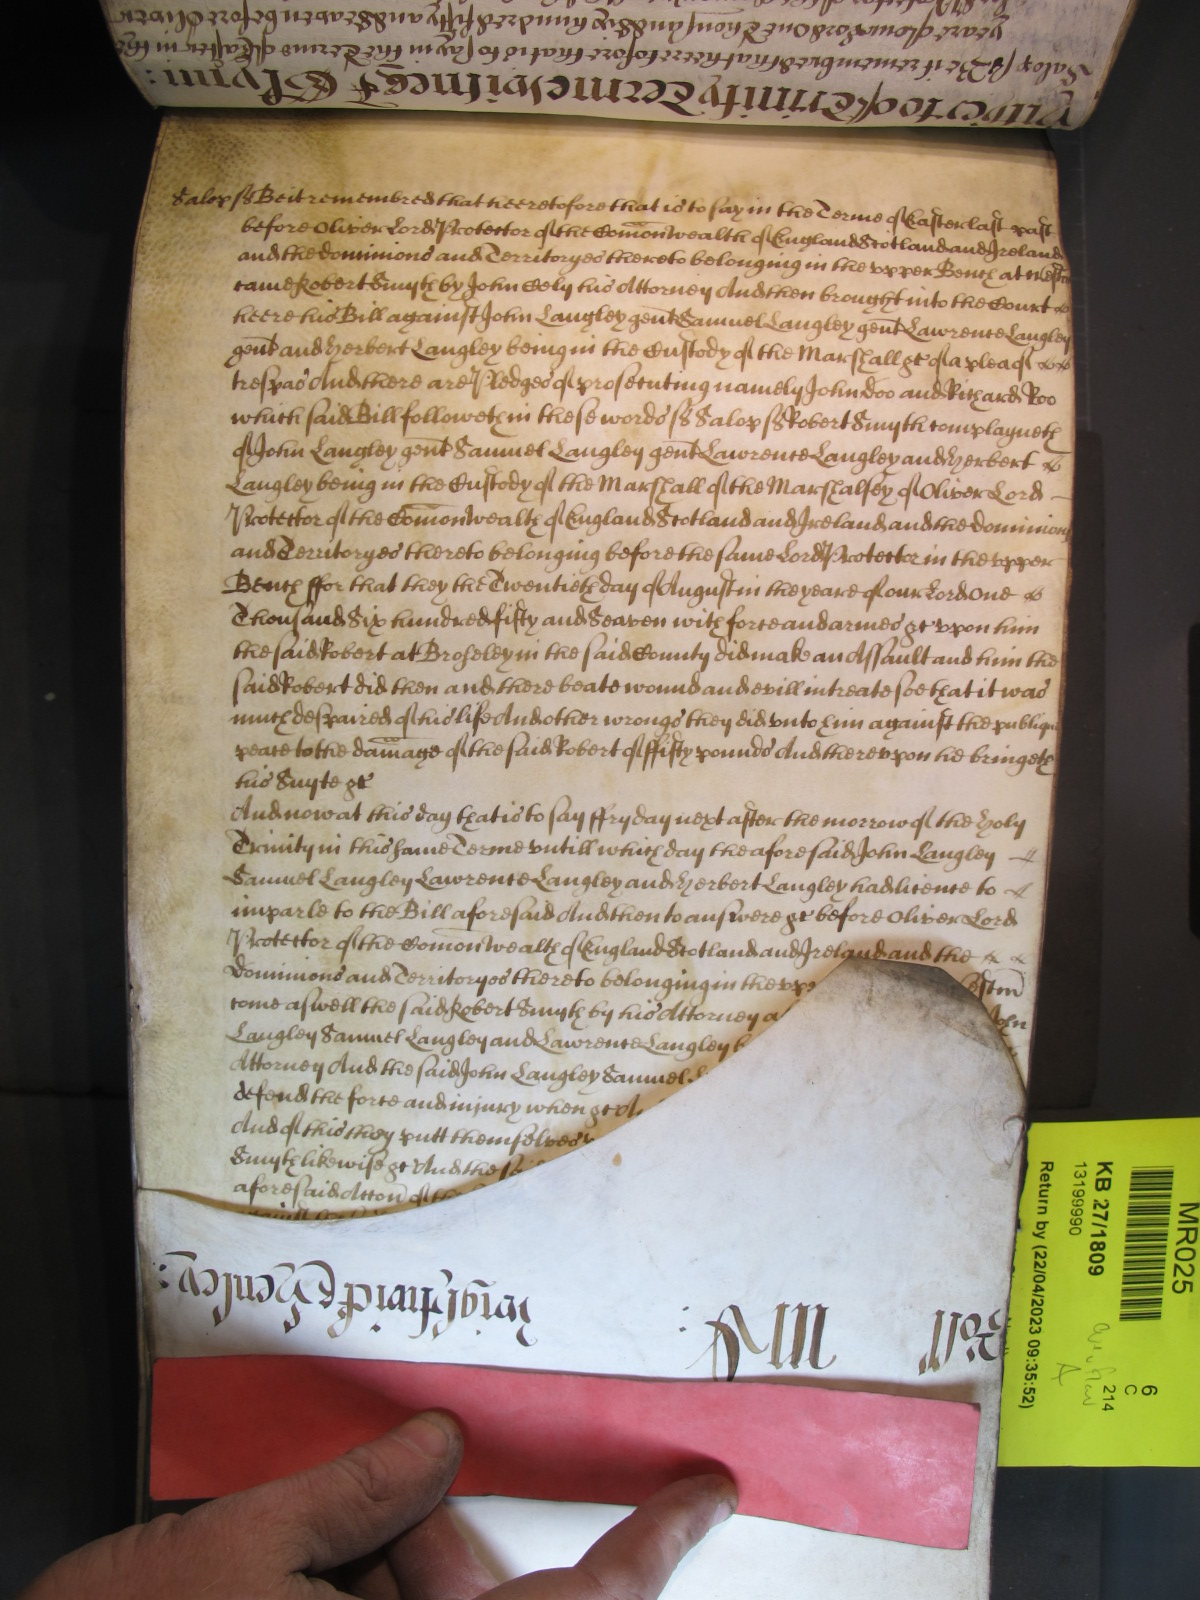 Salop ss Be it remembred that heeretofore that is to say in the Terme of Easter last past
before Oliver Lord Protector of the Comonwealth of England Scotland and Ireland
and the Dominions and Territoryes thereto belonging in the vpper Bench at Westm
came Robert Smyth by John Cely his Attorney And then brought into the Court
heere his Bill against John Langley gent Samuel Langley gent Lawrence Langley
gent and Herbert Langley being in the Custody of the Marshall &c of a plea of
trespas And there are Pledges of prosecuting namely John Doo and Richard Roo
which said Bill followeth in these words ss Salop ss Robert Smyth complayneth
of John Langley gent Samuel Langley gent Lawrence Langley and Herbert
Langley being in the Custody of the Marshall of the Marshalsey of Oliver Lord
Protector of the Comonwealth of England Scotland and Ireland and the Dominions
and Territoryes thereto belonging before the same Lord Protector in the vpper
Bench ffor that they the Twentieth day of August in the yeare of our Lord One
Thousand Six hundred fifty and Seaven with force and armes &c vpon him
the said Robert at Broseley in the said County did make an Assault and him the
said Robert did then and there beate wound and evill intreate soe that it was
much despaired of his life And other wrongs they did vnto him against the publique
peace to the damage of the said Robert of ffifty pounds And therevpon he bringeth
his Suyte &c
And now at this day that is to say ffryday next after the morrow of the Holy
Trinity in this same Terme vntill which day the aforesaid John Langley
Samuel Langley Lawrence Langley and Herbert Langley had licence to
imparle to the Bill aforesaid And then to answere &c before Oliver Lord
Protector of the Comonwealth of England Scotland and Ireland and the
Dominions and Territoryes thereto belonging in the vppe estm
come aswell the said Robert Smyth by his Attorney a John
Langley Samuel Langley and Lawrence Langley b
Attorney And the said John Langley Samuel
defend the force and injury when &c
And of this they putt themselves
Smyth likewise &c And the sa
aforesaid Attorn of the
Trinity Terme
Salop ss Be it remembred that heeretofore that is to say in the Terme of Easter in the
yeare of our Lord One Thousand Six hundred fifty and Seaven before Oliver
Roll
MR025
6
C
214
KB 27/1809
13199990
Return by (22/04/2023 09:35:52)